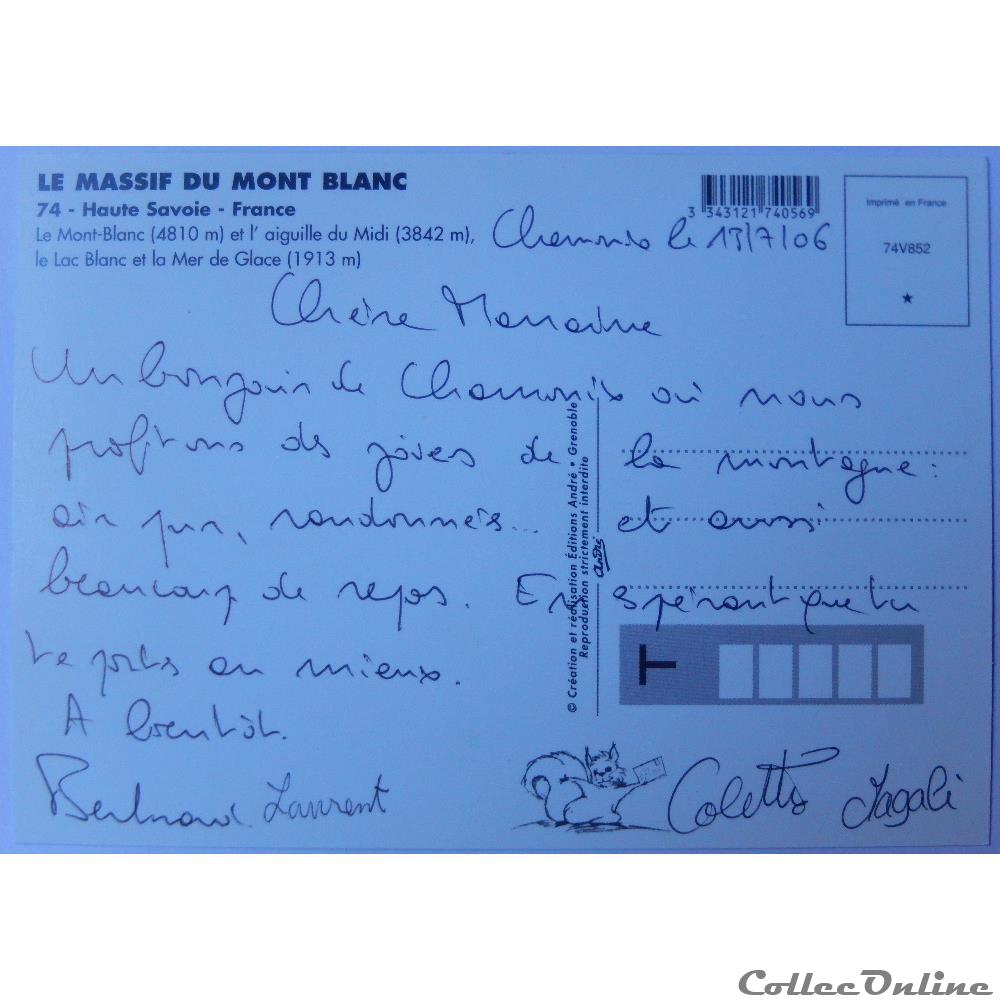 LE MASSIF DU MONT BLANC
74 - Haute Savoie - France
Le Mont-Blanc (4810 m) et l' aiguille du Midi (3842 m),
le Lac Blanc et la Mer de Glace (1913 m)
3 343121 740569
Imprimé en France
74V852
Chamonix le 13/7/06
Chère Marraine
Un bonjour de Chamonix où nous
profitons des joies de la montagne :
air pur, randonnées... et aussi
beaucoup de repos. En espérant que tu
te portes au mieux.
A bientôt.
Bertrand Laurent Colette Magali
© Création et réalisation Éditions André • Grenoble
Reproduction strictement interdite
André
T
CollecOnline